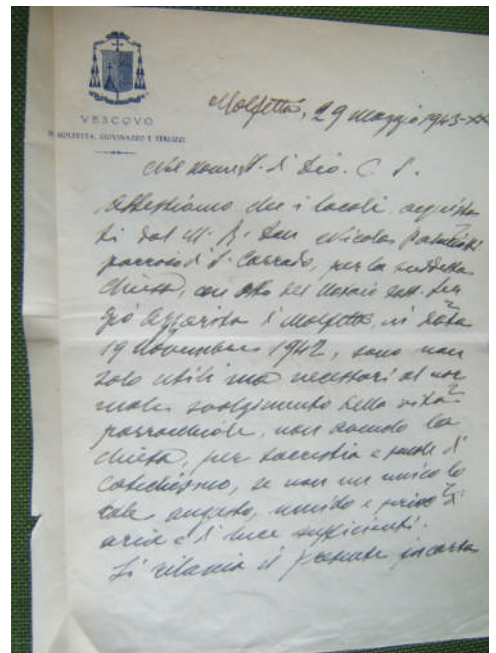 VESCOVO
DI MOLFETTA, GIOVINAZZO E TERLIZZI
Molfetta, 29 maggio 1943-XXI
Nel nome di Dio.
Attestiamo che i locali acquista
ti dal M. R. Don Nicola
parroco di S. Corrado, per la suddetta
chiesa, con atto del Notaio dott. Ser
gio Azzarita di Molfetta, in data
19 novembre 1942, sono non
solo utili ma necessari al nor
male svolgimento della vita
parrocchiale, non avendo la
chiesa, per sacrestia e scuole di
catechismo, se non un unico lo
cale, angusto, umido e privo di
aria e di luce sufficienti.
Si rilascia il presente in carta